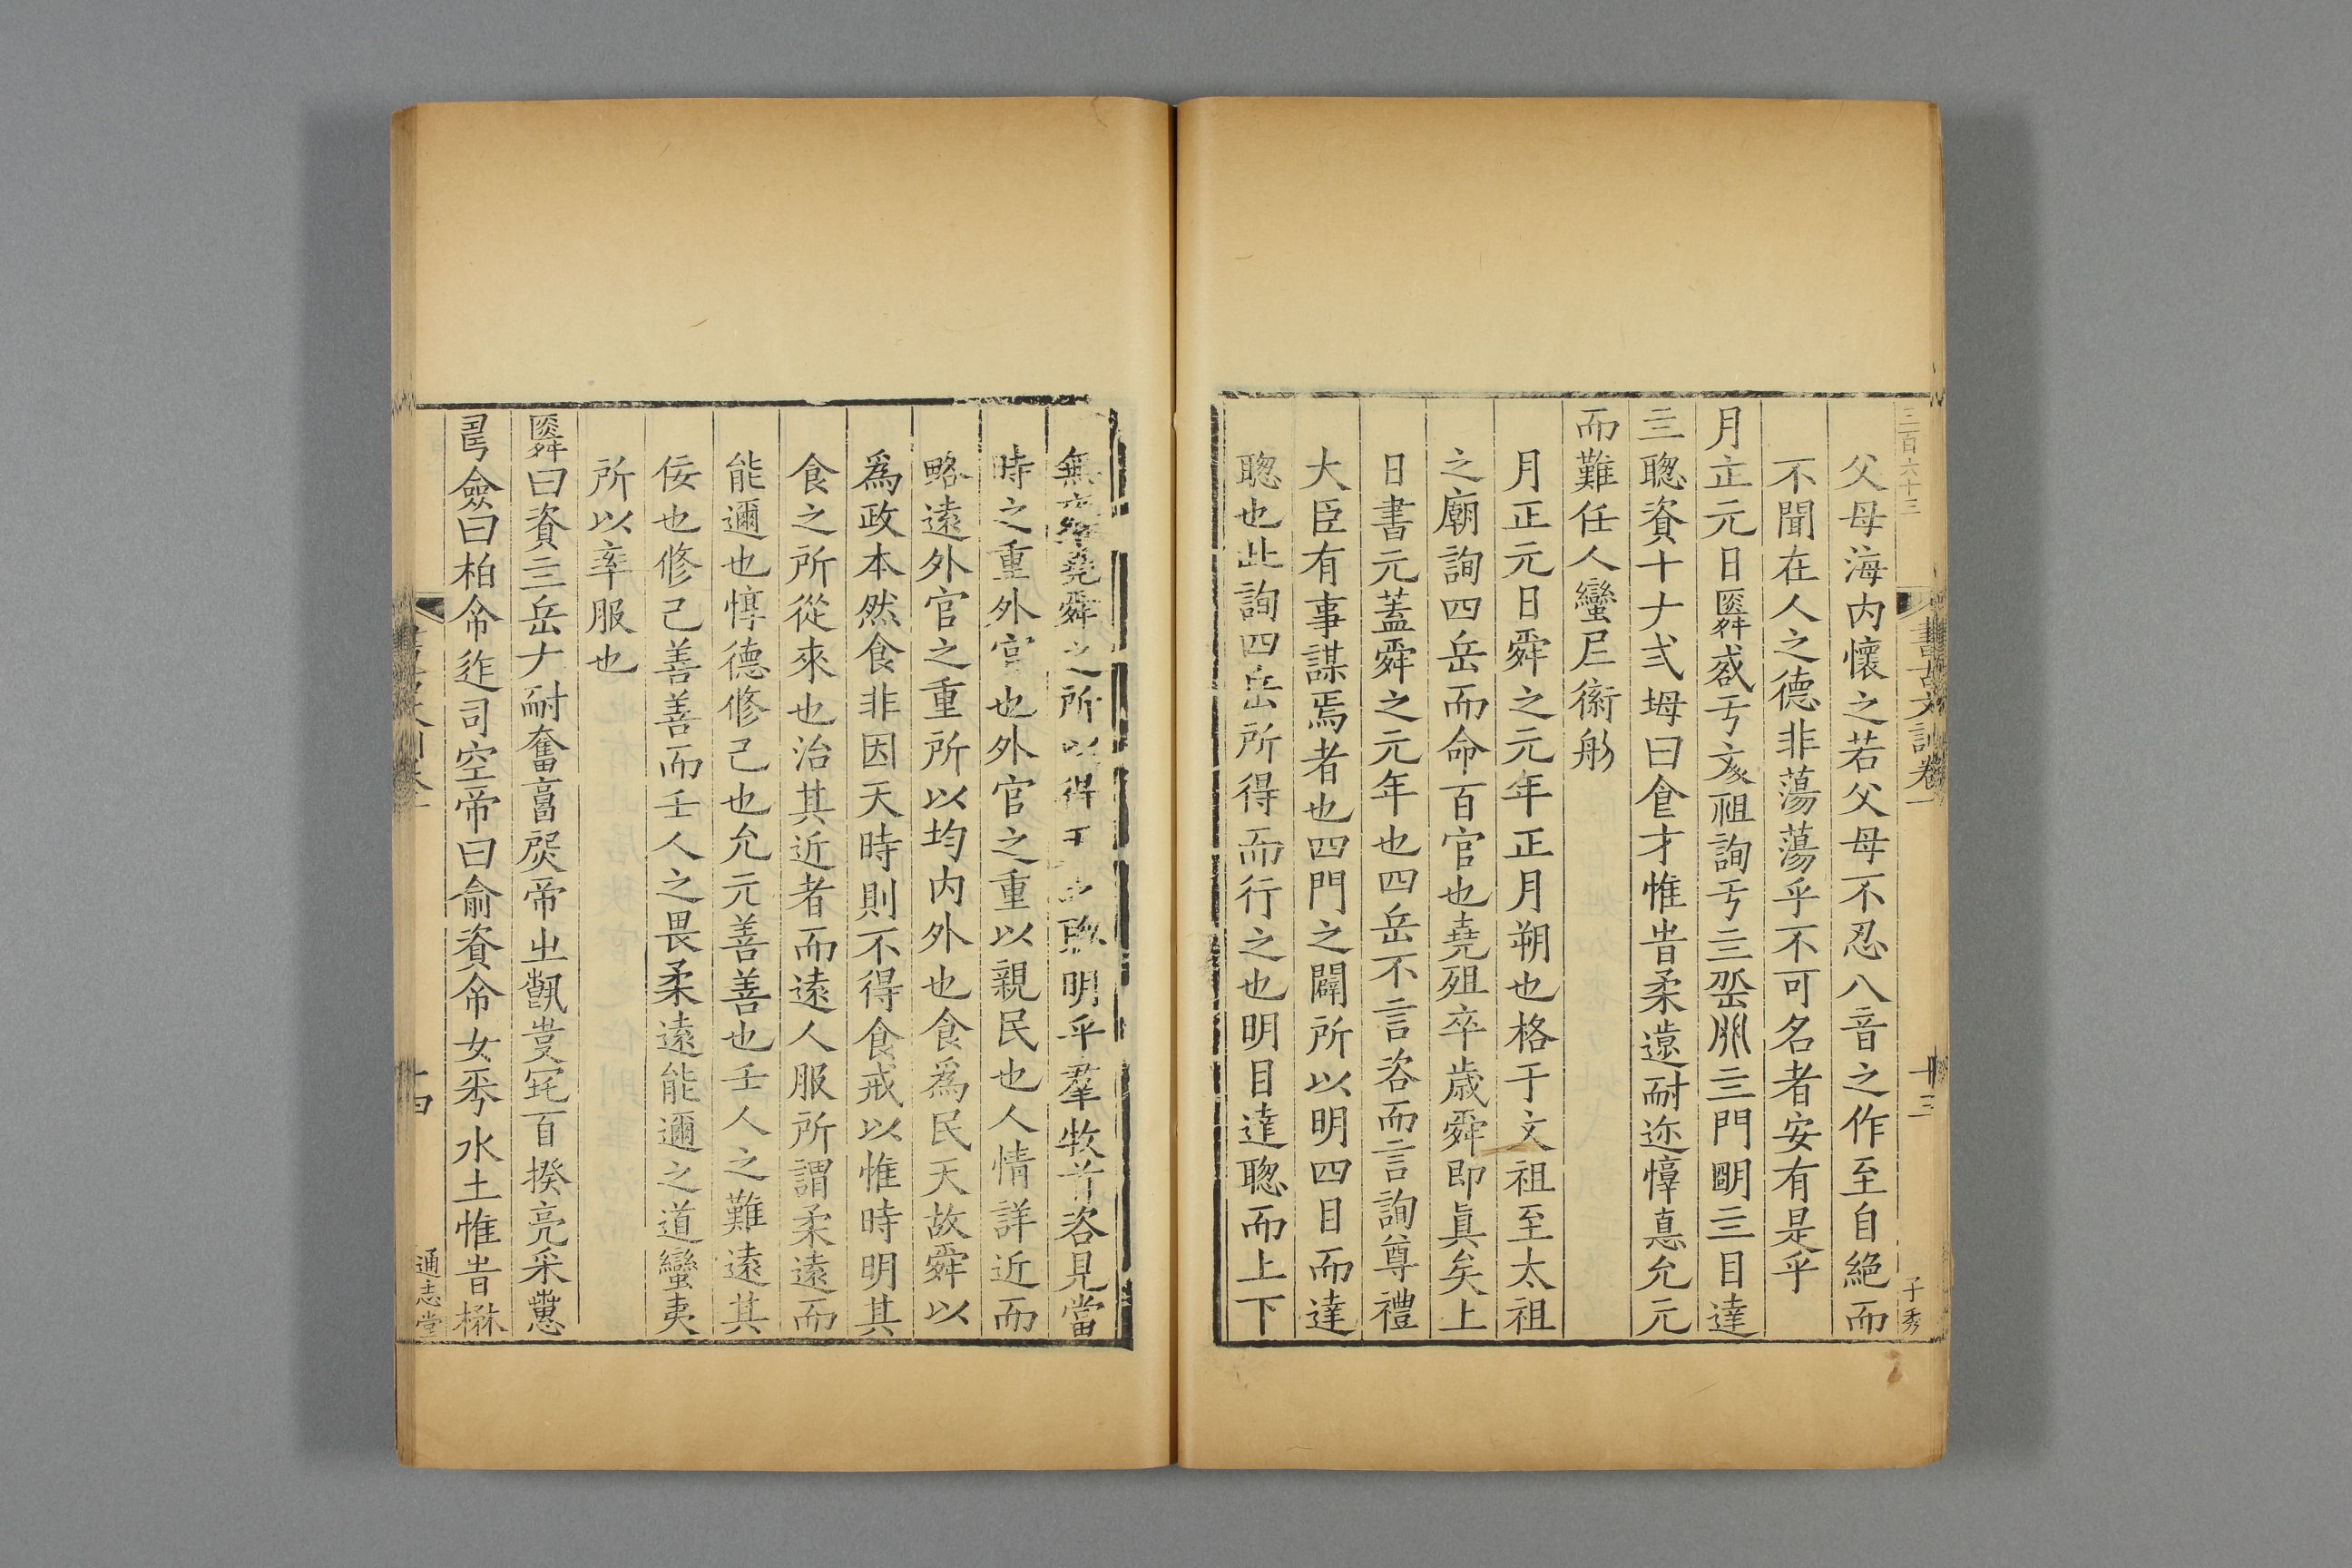 三百六十三
書古文訓卷一
十三
子秀
父母海内懷之若父母不忍八音之作至自絶而
不聞在人之德非蕩蕩乎不可名者安有是乎
月正元日舜亏祖詢亏三門三目達
三聰資十曰食才惟旹柔遠耐迩惇惪允元
而難任人蠻
月正元日舜之元年正月朔也格于文祖至太祖
之廟詢四岳而命百官也堯殂卒歲舜即眞矣上
日書元蓋舜之元年也四岳不言咨而言詢尊禮
大臣有事謀焉者也四門之闢所以明四目而達
聰也此詢四岳所得而行之也明目達聰而上下
無堯舜之所以得明乎羣牧咨見當
時之重外官也外官之重以親民也人情詳近而
略遠外官之重所以均内外也食爲民天故舜以
爲政本然食非因天時則不得食戒以惟時明其
食之所從來也治其近者而遠人服所謂柔遠而
能邇也惇德修己也允元善善也壬人之難遠其
佞也修己善善而壬人之畏柔遠能邇之道蠻夷
所以率服也
曰資岳耐奮帝百揆亮采
僉曰柏司空帝曰俞資女水土惟旹
十四
通志堂